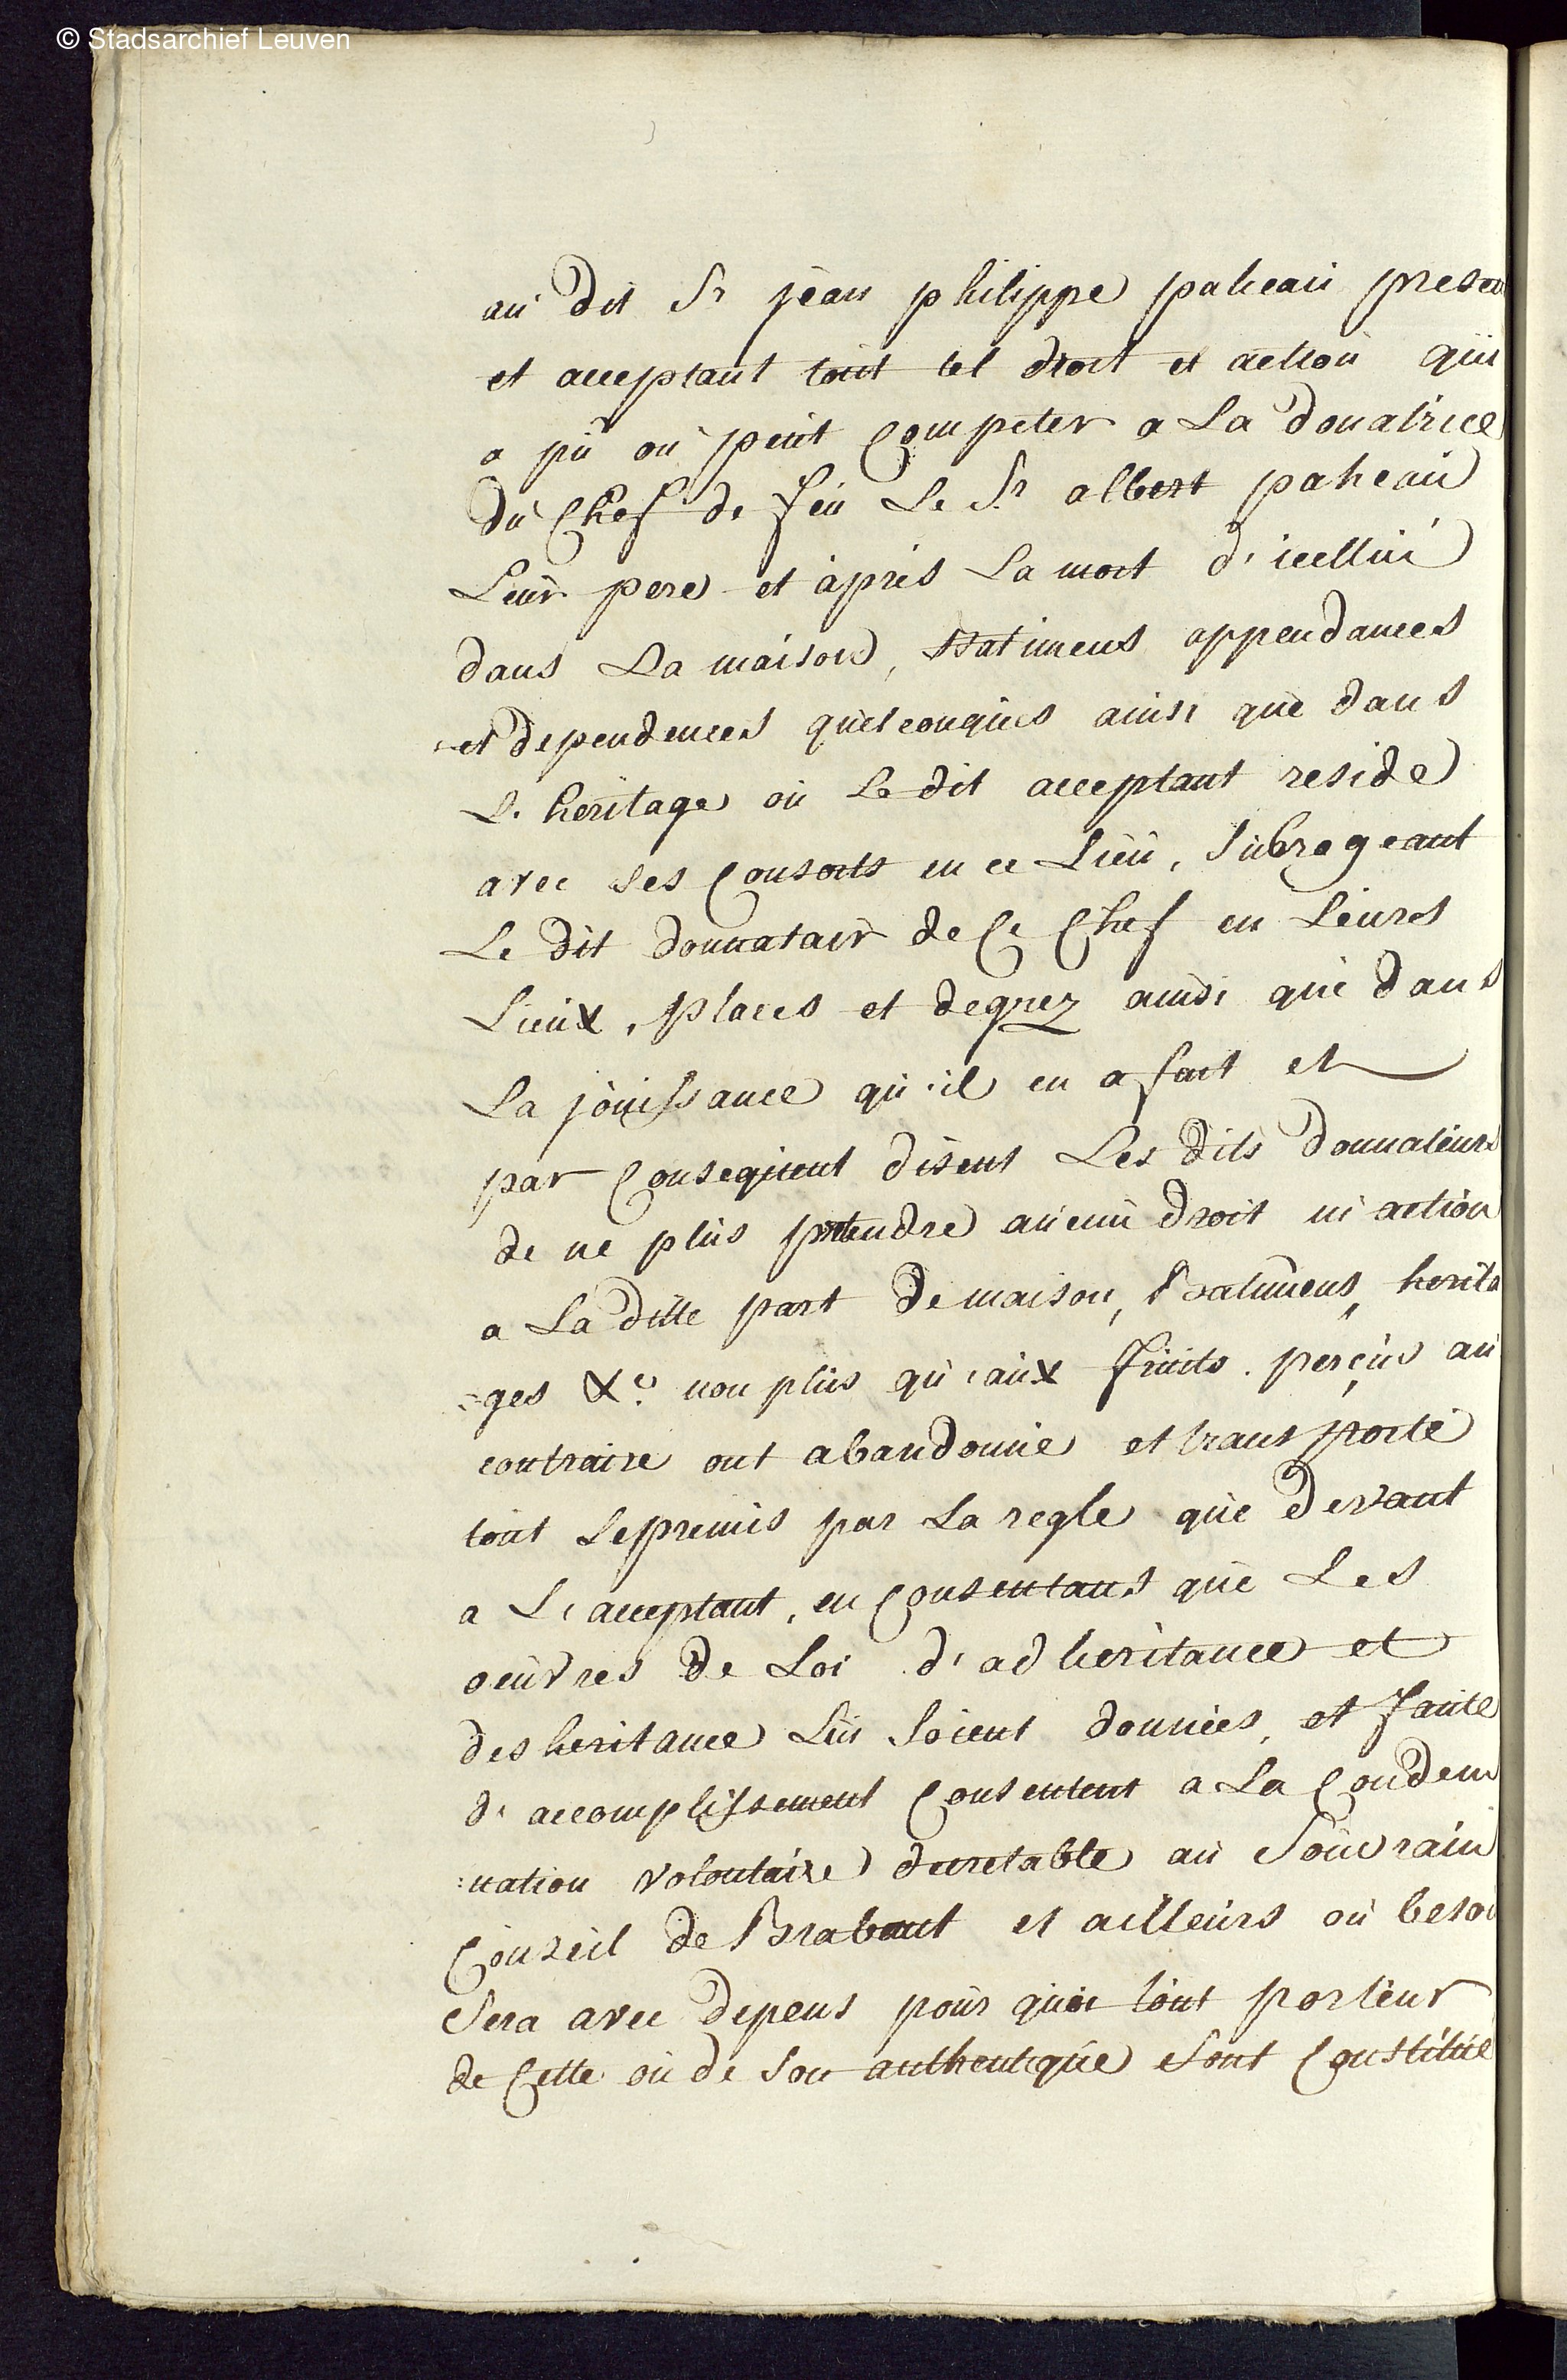 © Stadsarchief Leuven
au dit Sr jean philippe paheau presen
et acceptant tout tel droit et action qui
a pu ou peut Competer a La donatrice
du Chef de feu Le Sr albert paheau
Leur pere et après La mort d'icellui
dans La maison, Batimens appendances
et dependences quelconques ainsi que dans
L'heritage ou Le dit acceptant reside
avec ses Consorts en ce Lieu, Subrogeant
Le dit donnatair de Ce Chef en Leures
Lieux, places et degrez ainsi que dans
La jouissance qu'il en a fait et
par Consequent disent Les dits donnateurs
de ne plus pretendre aucun droit ni action
a La ditte part de maison, Batimens, herita
=ges &c non plus qu'aux fruits perçus au
contraire ont abandonné et transporté
tout Lepremis par La regle que devant
a L'acceptant, en Consentans que Les
oeuvres de Loi d'adheritance et
desheritance Lui Soient données, et faute
d'accomplissement Consentent a La Condem
:nation volontaire decretable au Souvrain
Conseil de Brabant et ailleurs où besoi
Sera avec depens pour quoi tout porteur
de Cette ou de Son authentique Sont Constitué